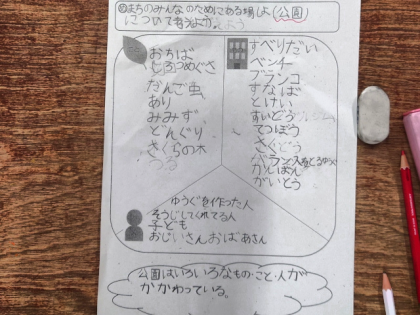 まちのみんなのためにある場しょ(公園)
について考えよう
おちば
しろつめぐさ
だんご虫
あり
みみず
どんぐり
さくらの木
すべりだい
ベンチ
ブランコ
すなば
とけい
すいどう
てつぼう
さく
かんばん
がいとう
ゆうぐを作った人
そうじしてくれてる人
子ども
おじいさんおばあさん
公園はいろいろなもの・こと・人が
かかわっている。